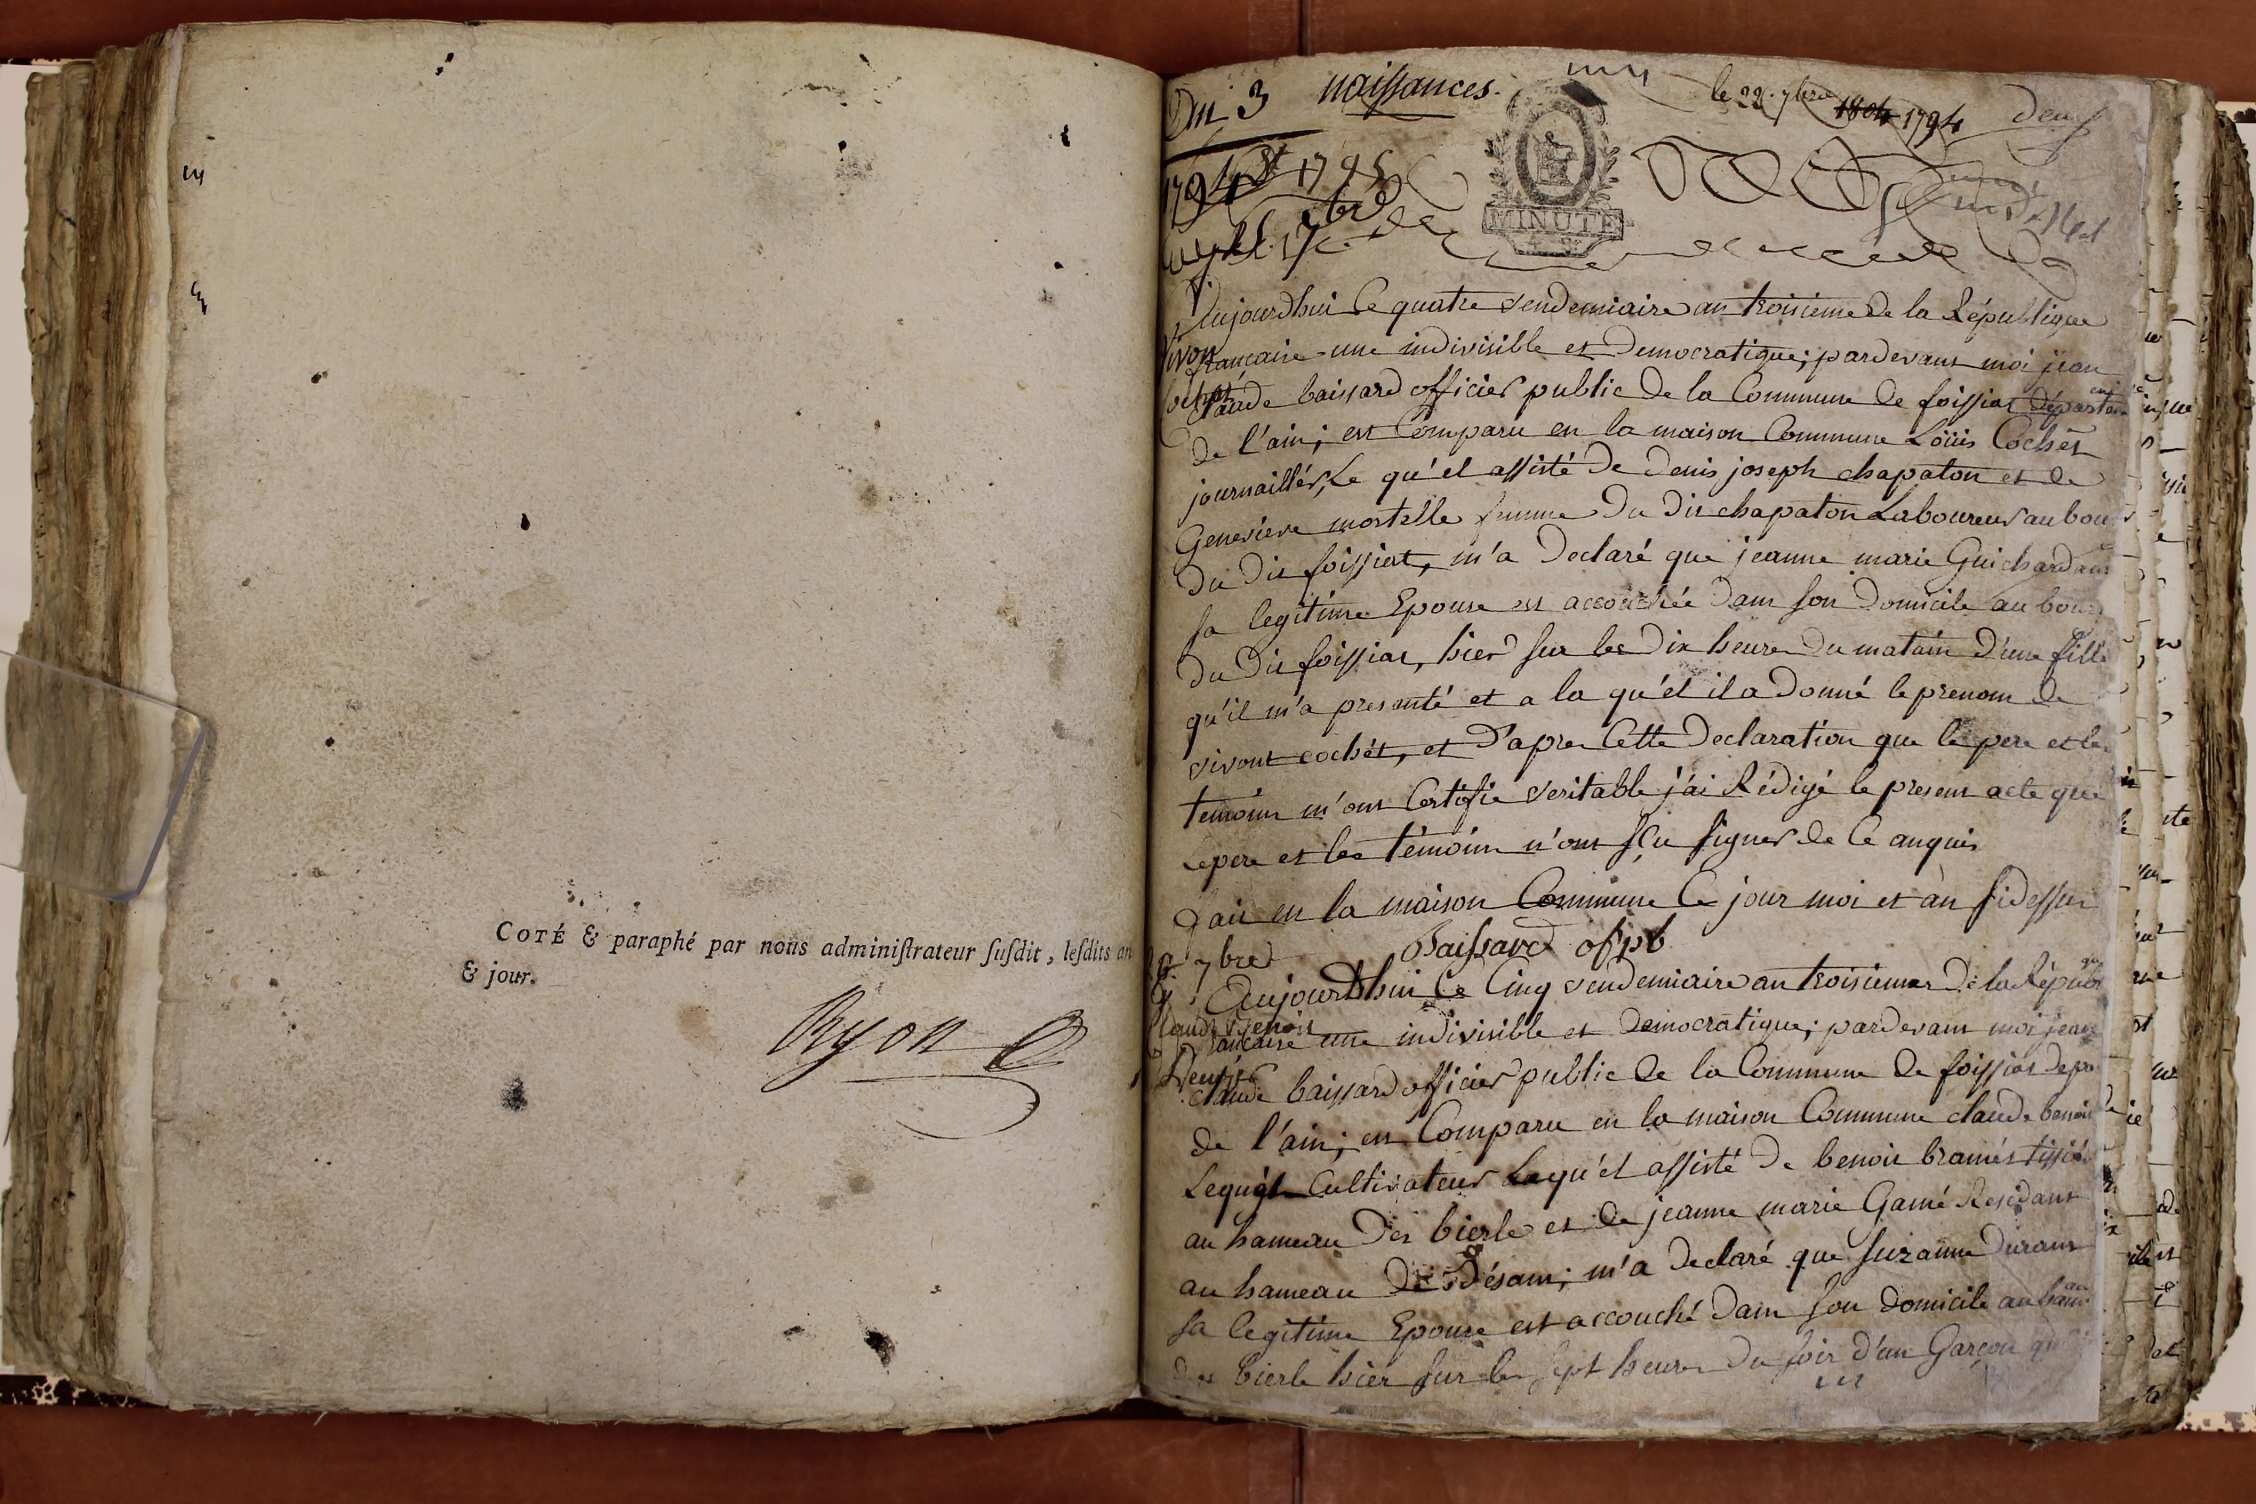 COTÉ & paraphé par nous adminiſtrateur ſuſdit, leſdits an
& jour.
Ryon
An 3 naissances.
le 22. 7bre 1804 1794 deux
1794 et 1795
MINUTE
Aujourdhui Ce quatre vendemiaire an troisieme de la République
francaise une indivisible et Democratique; pardevant moi jean
claude baissard officier public de la Commune de foissiat départem
de l'ain; est Comparu en la maison Commune Loüis Cochet
journaillér, Le qu'el assisté de denis joseph chapaton et de
Genevieve mortelle femme du dit chapaton Laboureur au bou
du dit foissiat, m'a Declaré que jeanne marie Guichard
sa legitime Epouse est accouchée dans son Domicile au bour
du Dit foissiat, hier sur les Dix heures du matain D'une fille
qu'il m'a presenté et a la qu'el il a Donné le prenom de
vivont cochet, et D'apres Cette Declaration que le pere et les
temoins m'ont Certifie veritable j'ai Rédigé le present acte que
Le pere et les témoins n'ont sçu signer de Ce anquis
fait en la maison Commune Ce jour moi et an sidessus
7bre Baissard of pb
Aujourdhui Ce Cinq vendemiaire an troisieme De la Républi
Claude Benoit
francaise une indivisible et Democratique; pardevant moi jean
claude baissard officier public de la Commune de foissiat depa
de l'ain; est Comparu en la maison Commune claude benoit
Lequel Cultivateur Lequ'el assisté de benoit bramés tissié
au hameau Des bierle et de jeanne marie Gamé Residant
au hameau De Désam; m'a declaré que suzanne Durant
sa legitime Epouse est accouché Dans son domicile au ham
des bierle hier sur les sept heures Du soir d'un Garçon qu